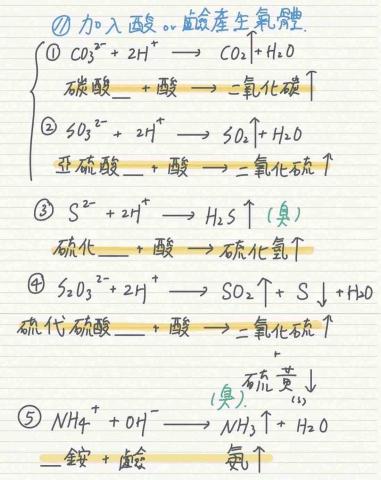 // 加入酸 or 鹼產生氣體
① CO3²⁻ + 2H⁺ → CO2↑ + H2O
碳酸__ + 酸 → 二氧化碳↑
② SO3²⁻ + 2H⁺ → SO2↑ + H2O
亞硫酸__ + 酸 → 二氧化硫↑
③ S²⁻ + 2H⁺ → H2S↑ (臭)
硫化__ + 酸 → 硫化氫↑
④ S2O3²⁻ + 2H⁺ → SO2↑ + S↓ + H2O
硫代硫酸__ + 酸 → 二氧化硫↑
+
硫黃↓
(s)
(臭)
⑤ NH4⁺ + OH⁻ → NH3↑ + H2O
__銨 + 鹼 氨↑